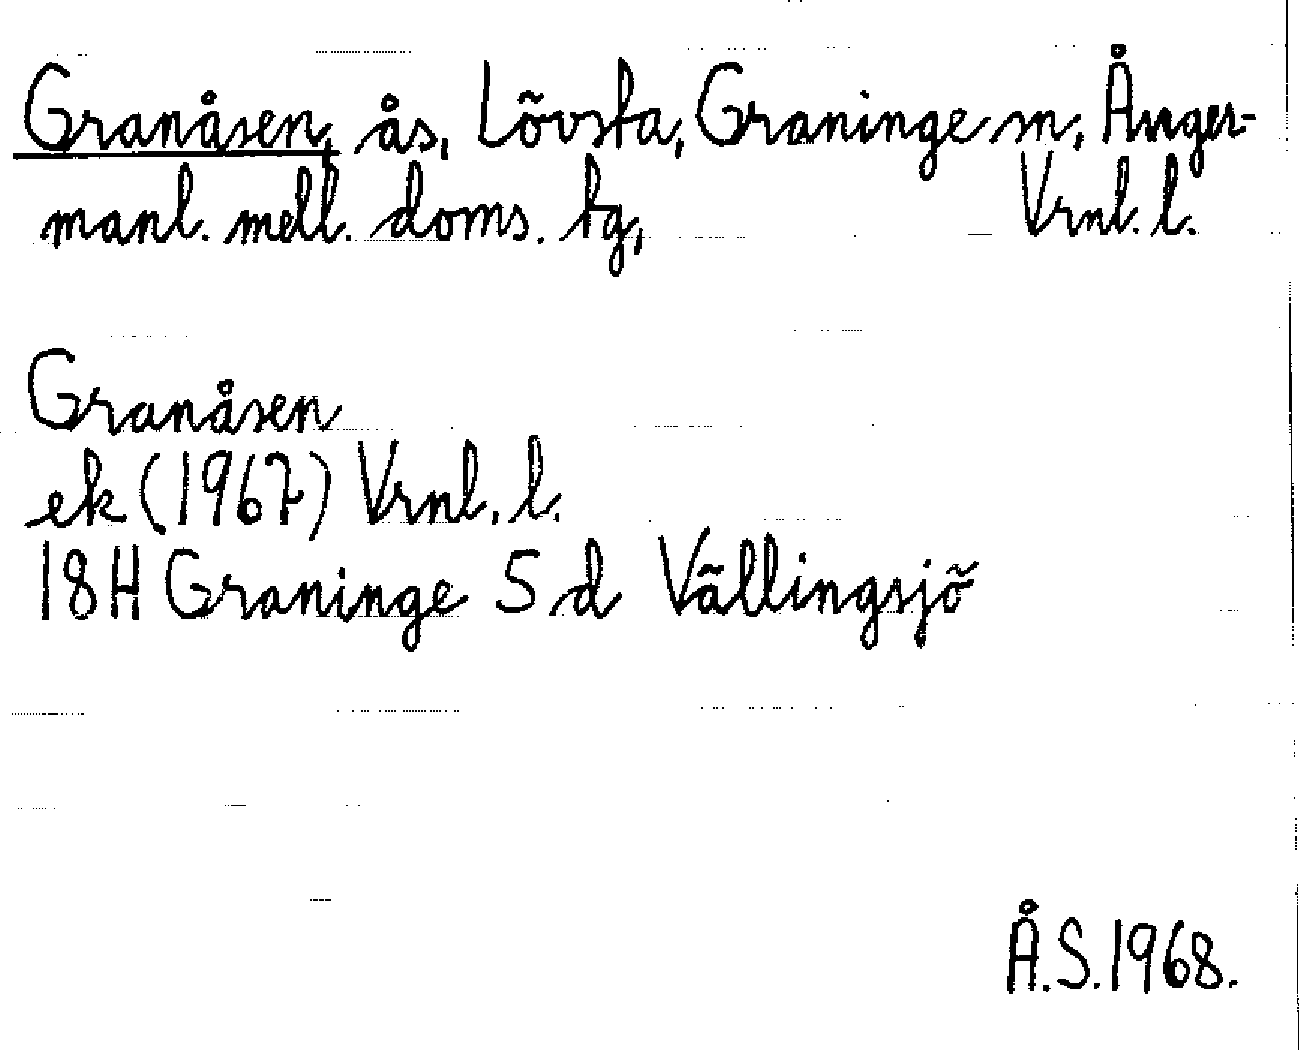 Granåsen, ås, Lövsta, Graninge sn, Ånger-
manl. mell. doms. tg, Vrnl. l.
Granåsen
ek (1967) Vrnl. l.
18H Graninge Sd Vällingsjö
Å.S. 1968.